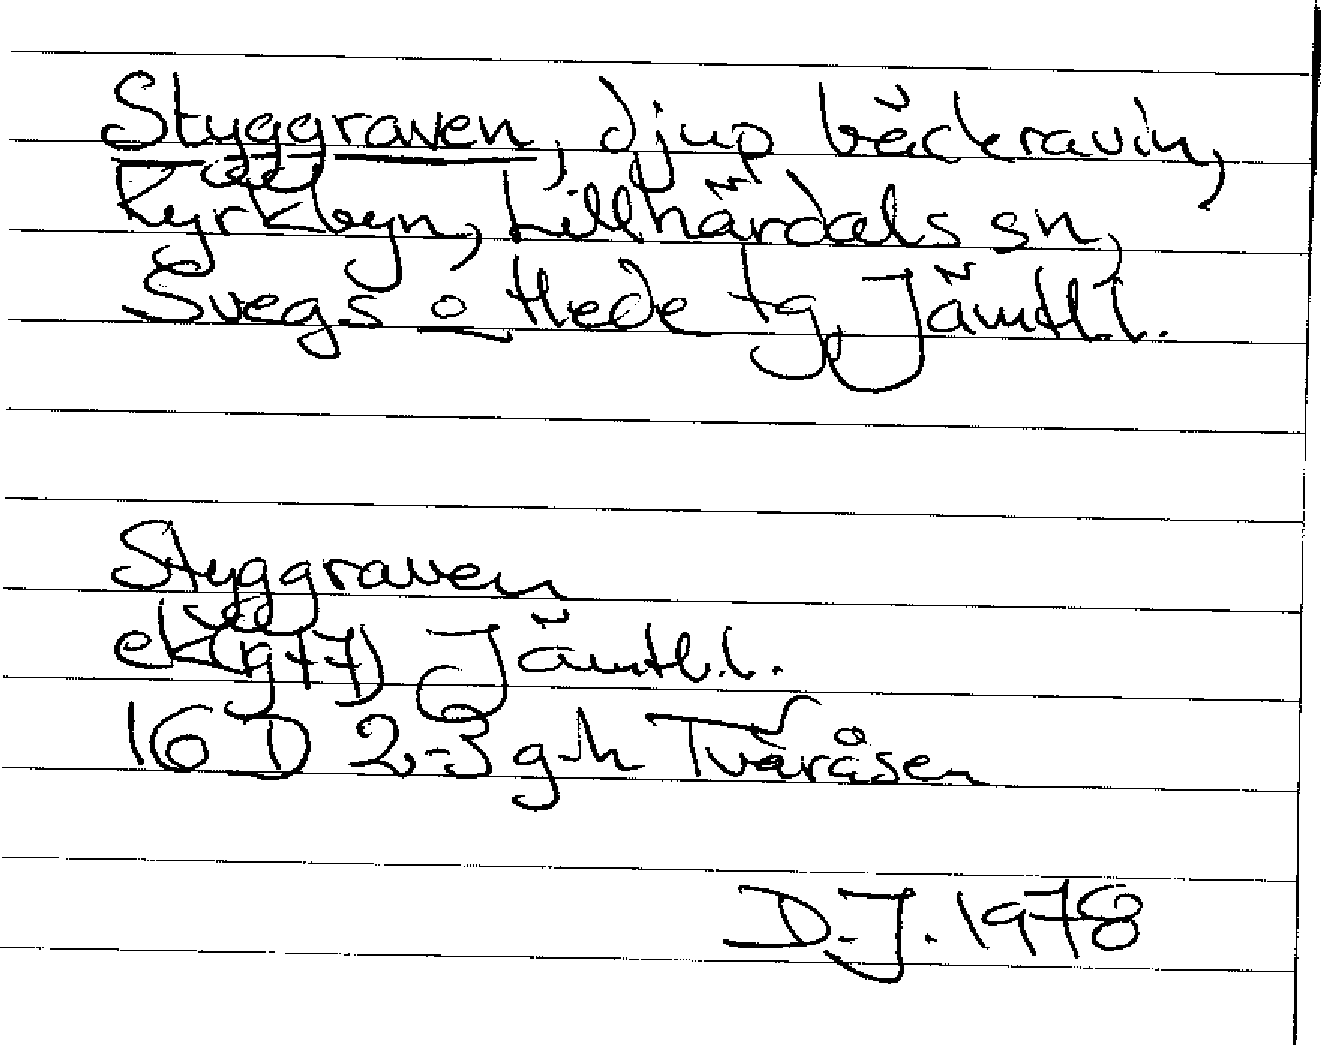 Styggraven, djup bäckravin,
Kyrkbyn, Lillhärdals sn,
Svegs o Hede tg, Jämtl. l.
Styggraven
ek(g+7) Jämtl. l.
16 D 2-3 g-h Tvåråsen
D.J. 1978